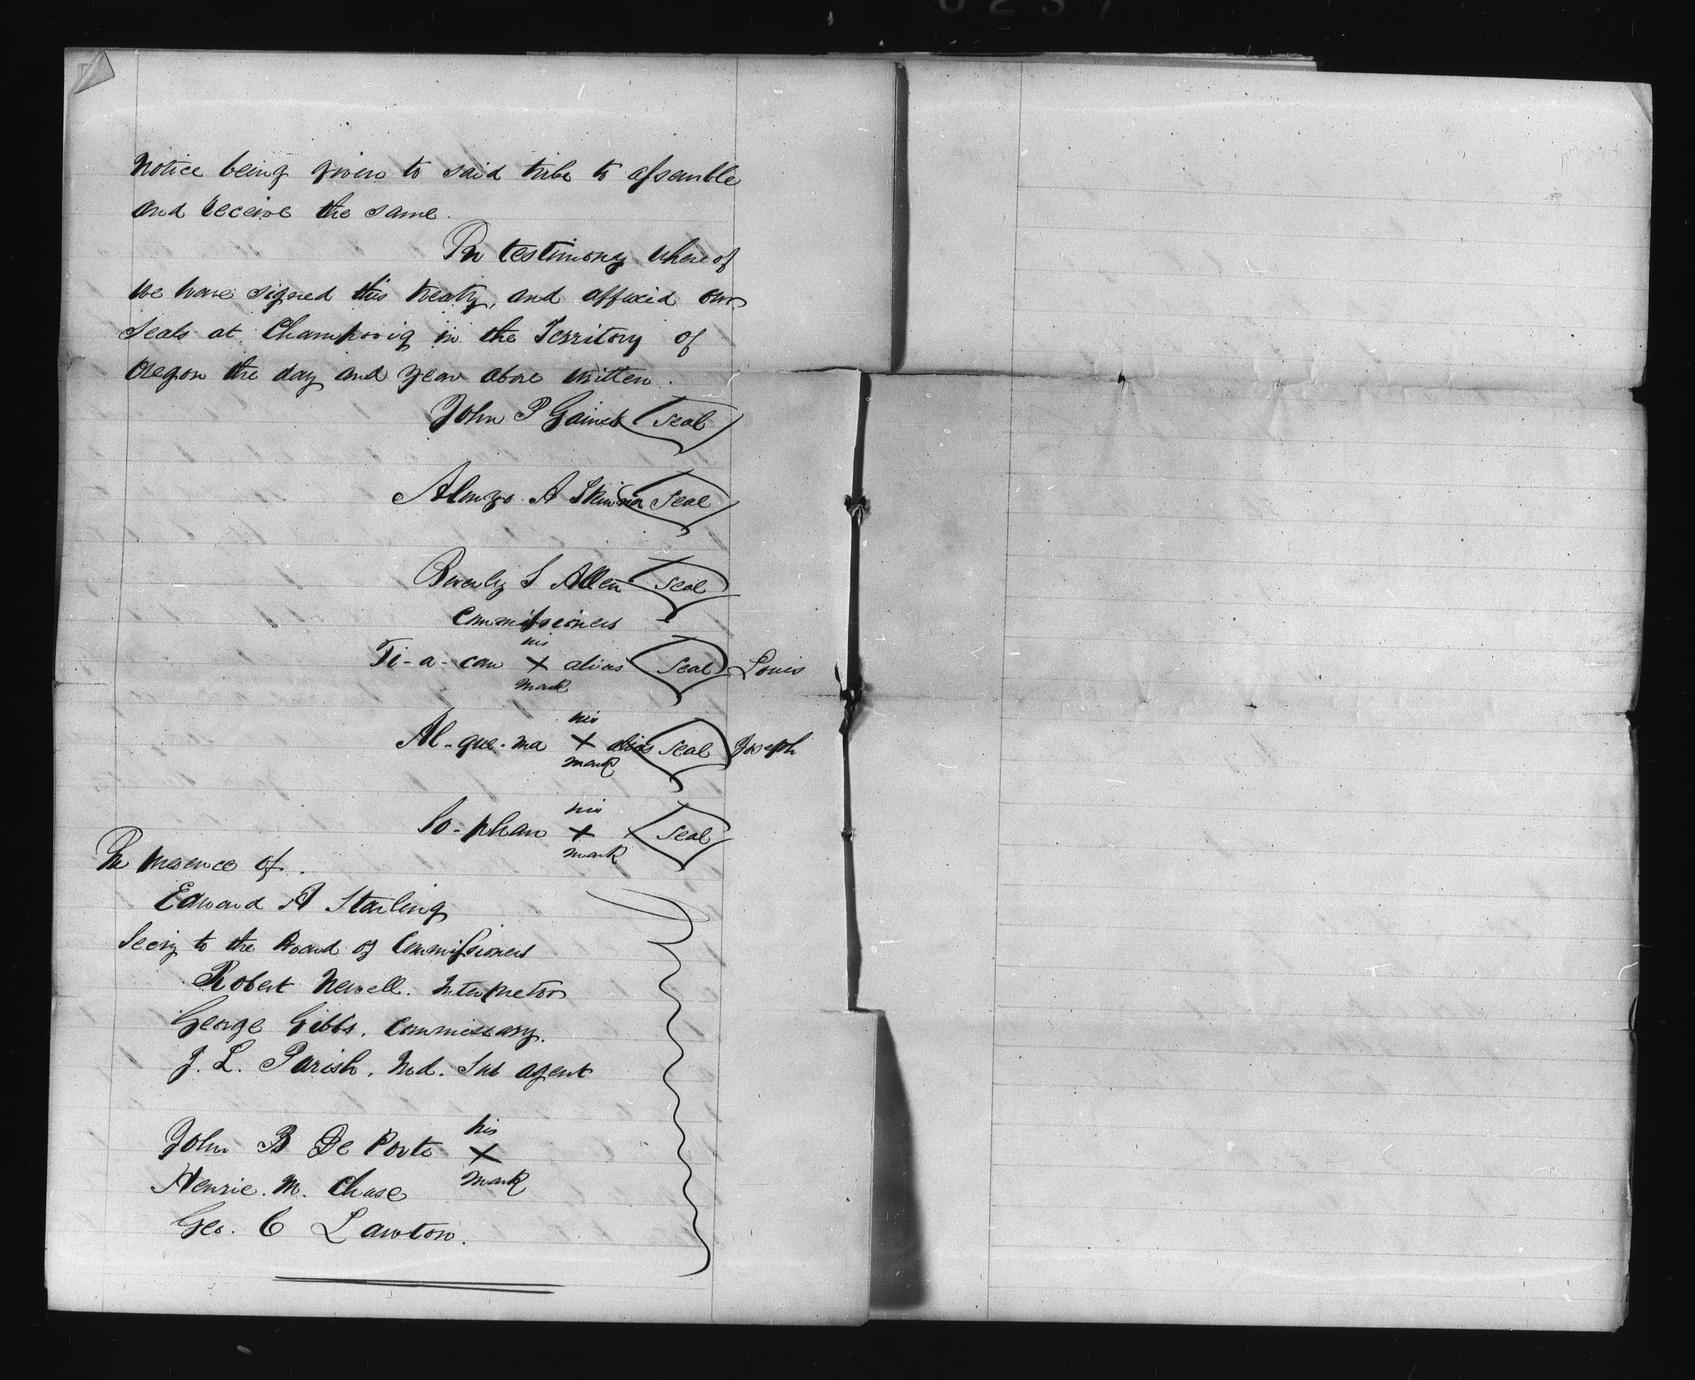 notice being given to said tribe to assemble
and receive the same.
In testimony whereof
we have signed this treaty, and affixed our
seals at Champooig in the Territory of
Oregon the day and year above written.
John P Gaines Seal
Alonzo A Skinner Seal
Beverly S Allen Seal
Commissioners
his
Ti-a-can X alias Seal Louis
mark
his
Al-que-ma X alias Seal Joseph
mark
his
So-phan X Seal
mark
In presence of.
Edward A Starling
Secry to the Board of Commissioners
Robert Newell. Interpretor
George Gibbs. Commissary.
J. L. Parish. Ind. Sub agent
his
John B De Porte X
mark
Henrie. M. Chase
Geo. C Lawton.